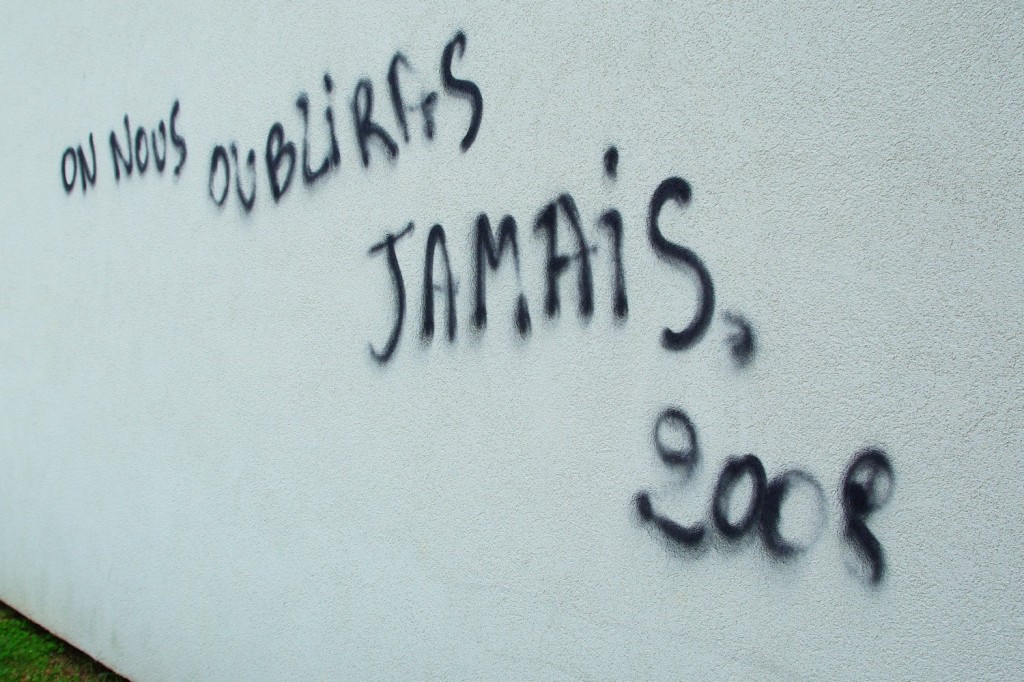 ON NOUS OUBLiRAS
JAMAiS,
2009